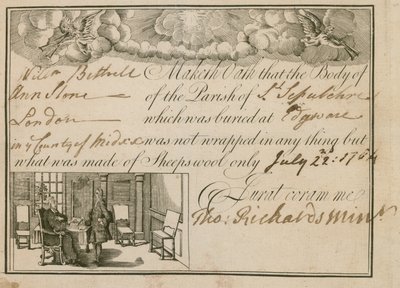 Will.m Bethell Maketh Oath that the Body of
Ann Stone of the Parish of St Sepulchres
London which was buried at Edgware
in ye County of Middx was not wrapped in any thing but
what was made of Sheeps wool only July 22: 1764
Jurat coram me
Tho: Richards Minr.